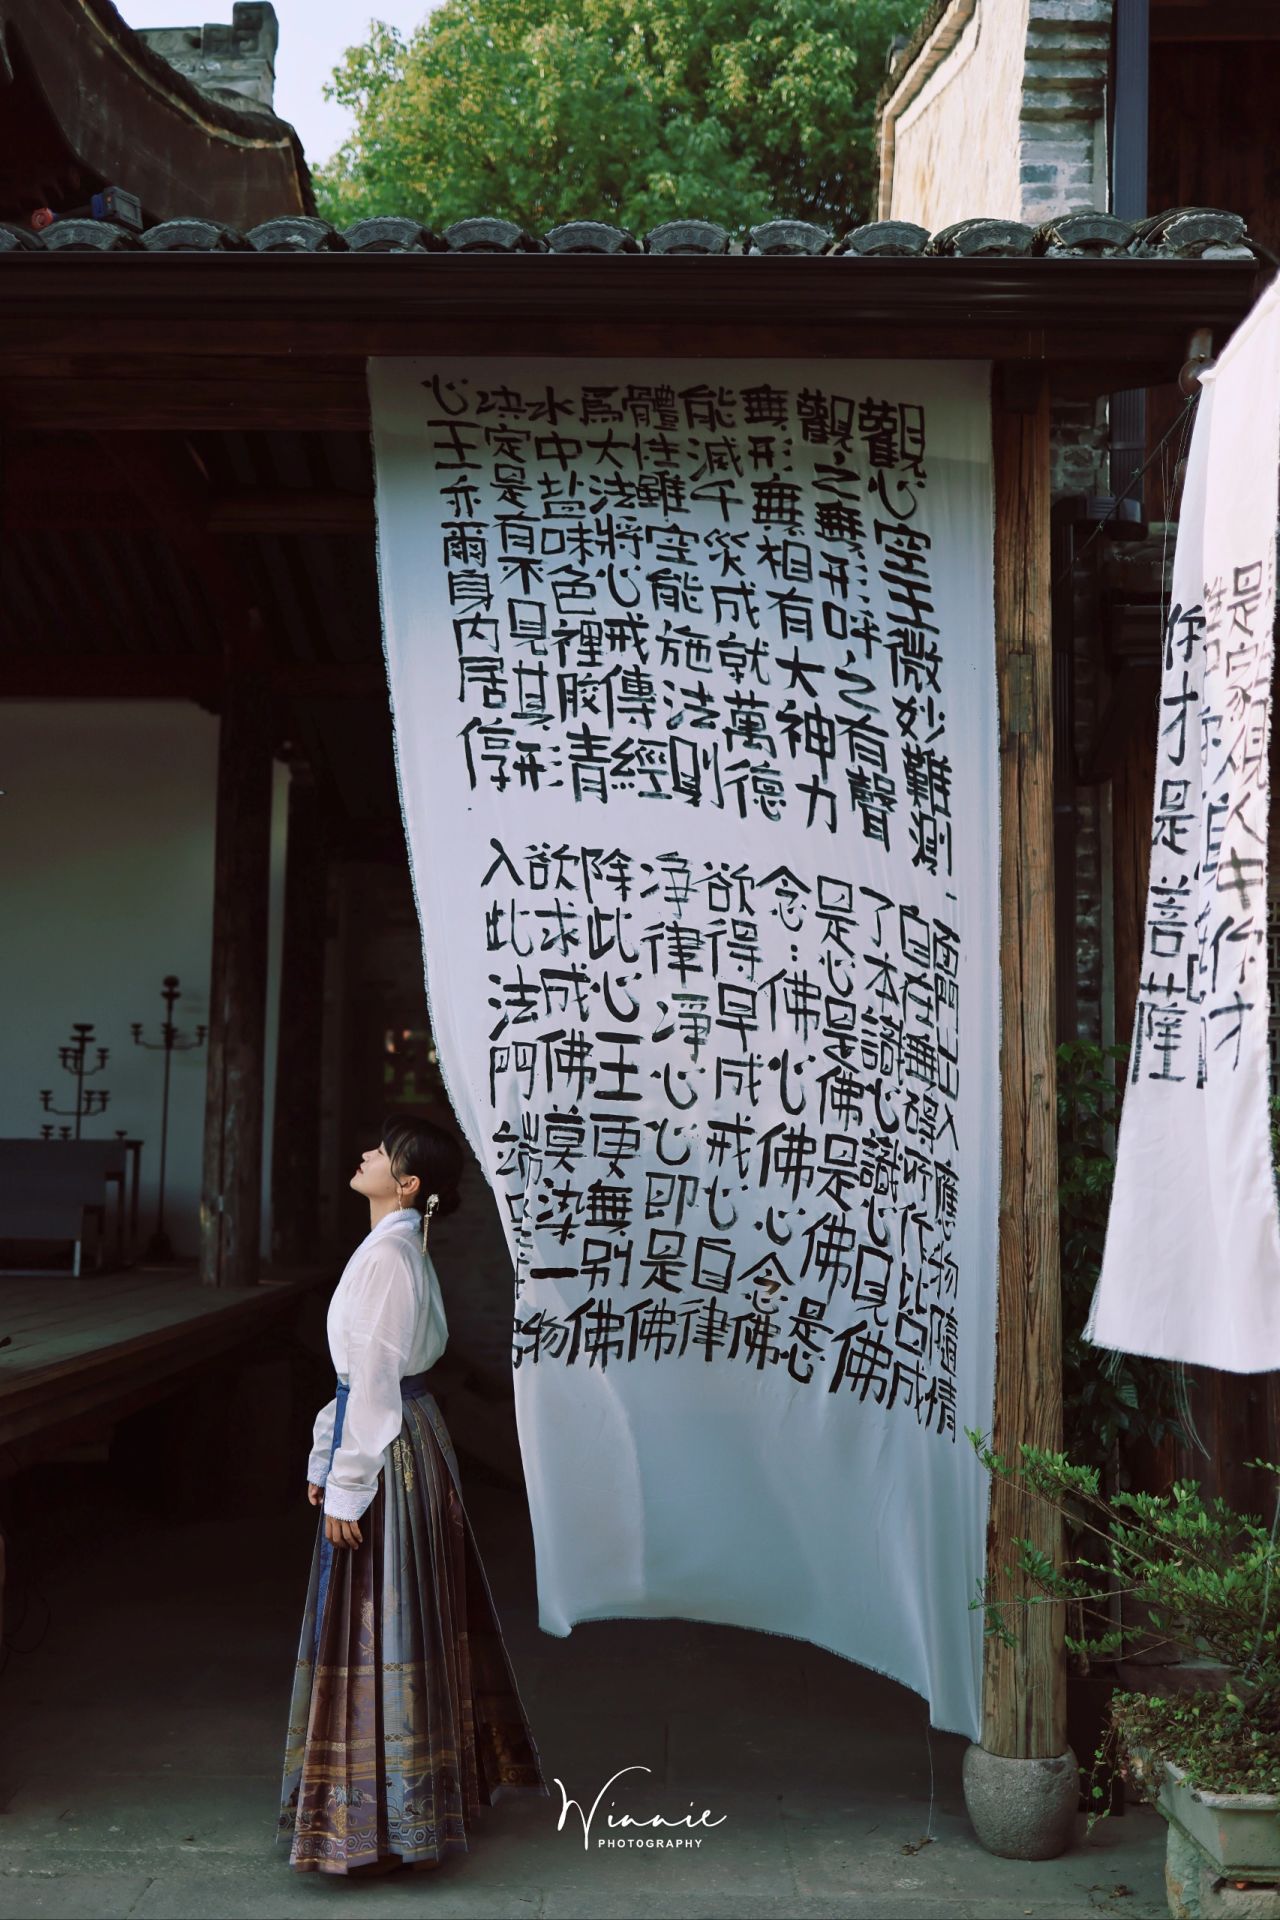 觀心空王微妙難測
觀之無形呼之有聲
無形無相有大神力
能滅千災成就萬德
體性雖空能施法則
爲大法將心戒傳經
水中盐味色裡膠青
決定是有不見其形
心王亦爾身内居停
面門出入應物隨情
自在無碍所作皆成
了本識心識心見佛
是心是佛是佛是心
念:佛心佛心念佛
欲得早成戒心自律
净律淨心心即是佛
除此心王更無别佛
欲求成佛莫染一物
入此法門端
你才是菩薩
Winnie
PHOTOGRAPHY